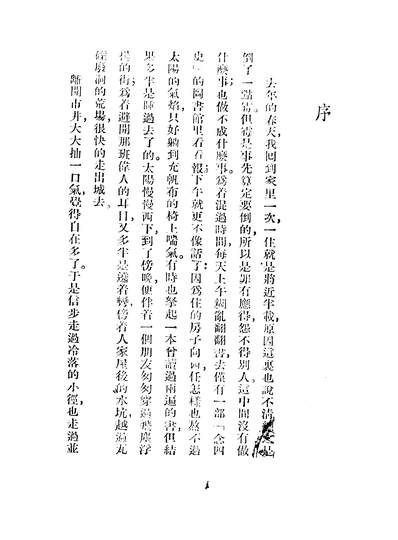 序
去年的春天,我回到家里一次,一住就是將近半載,原因這裏也說不清,
倒了一點霉。但霉是事先算定要倒的,所以是罪有應得,怨不得別人。這中間沒有做
什麼事,也做不成什麼事。爲着混過時間,每天上午糊亂翻翻書,去僅有一部「念四
史」的圖書館里看看報;下午就更不像話了:因爲住的房子向西,任怎樣也熬不過
太陽的氣焰,只好躺到充帆布的椅上喘氣。有時也拏起一本曾讀過兩遍的書,但結
果多半是睡過去了的。太陽慢慢西下,到了傍晚,便伴着一個朋友匆匆穿過飛塵浮
的街;爲着避開那班偉人的耳目,又多半是遶着彎,傍着人家屋後的水坑,越過瓦
礫廢澗的荒場,很快的走出城去。
離開市井大大抽一口氣,覺得自在多了。于是信步走過冷落的小徑,也走過並